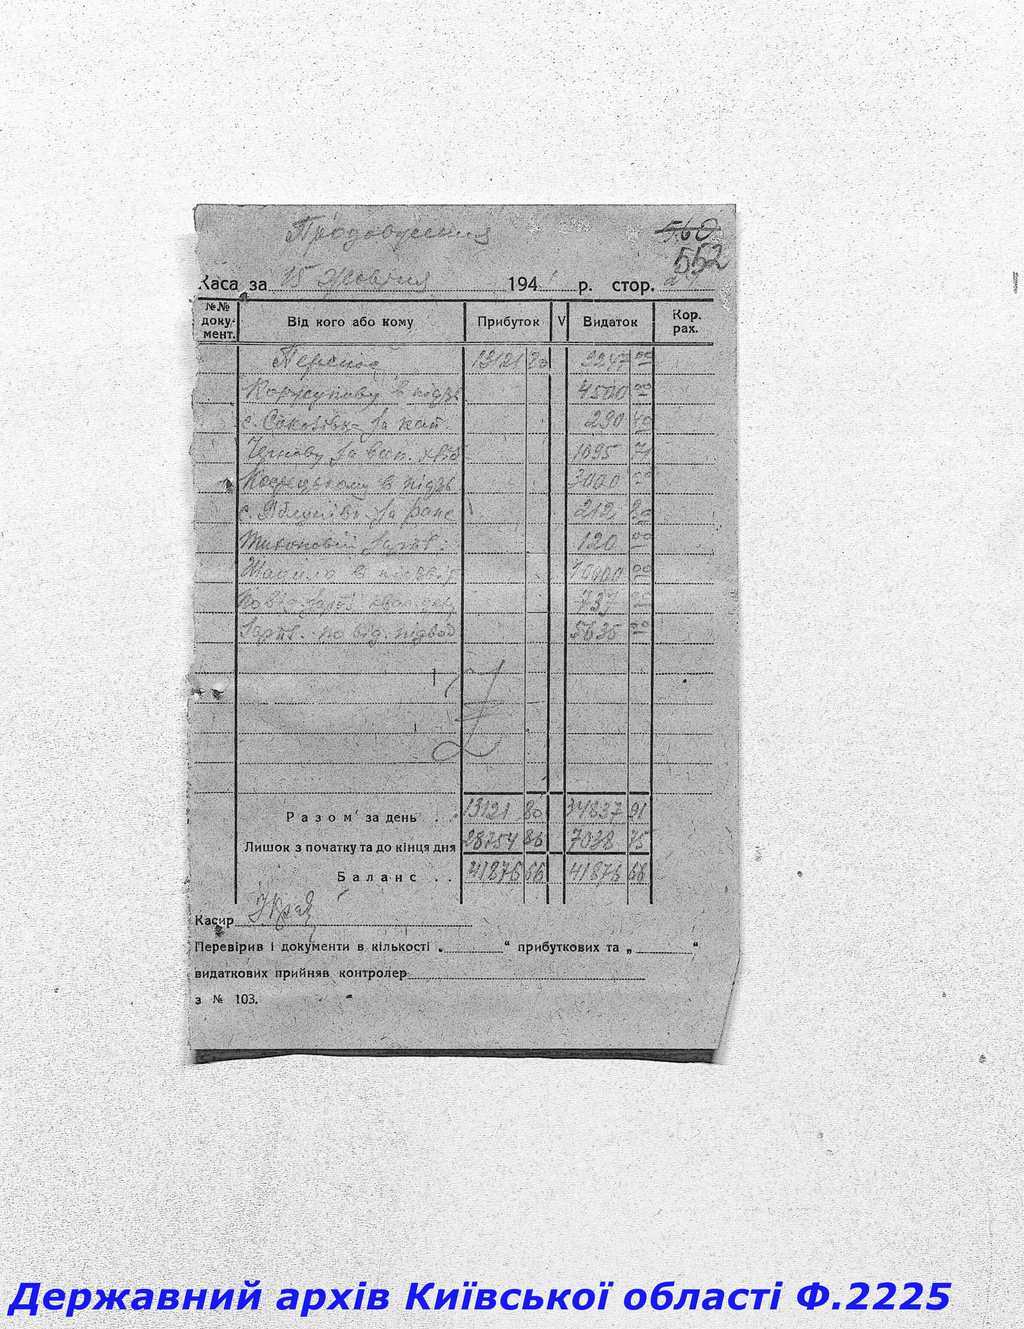 Продовження
560
552
Каса за 15 жовтня 194 р. стор.
№№ доку- мент. Від кого або кому Прибуток V Видаток Кор. рах.
Перенос 13121 80 2247 00
в підзв 4500 00
с. за кат. 290 40
Чернову за 1095 71
в підзв 3000 00
с. за 212 80
120 00
в 10000 00
737
по від. підвод 5635 00
Разом за день . . 13121 80 34837 91
Лишок з початку та до кінця дня 28754 86 7038 75
Баланс . . 41876 66 41876 66
Касир
Перевірив і документи в кількості „ “ прибуткових та „ “
видаткових прийняв контролер
з № 103.
Державний архів Київської області Ф.2225